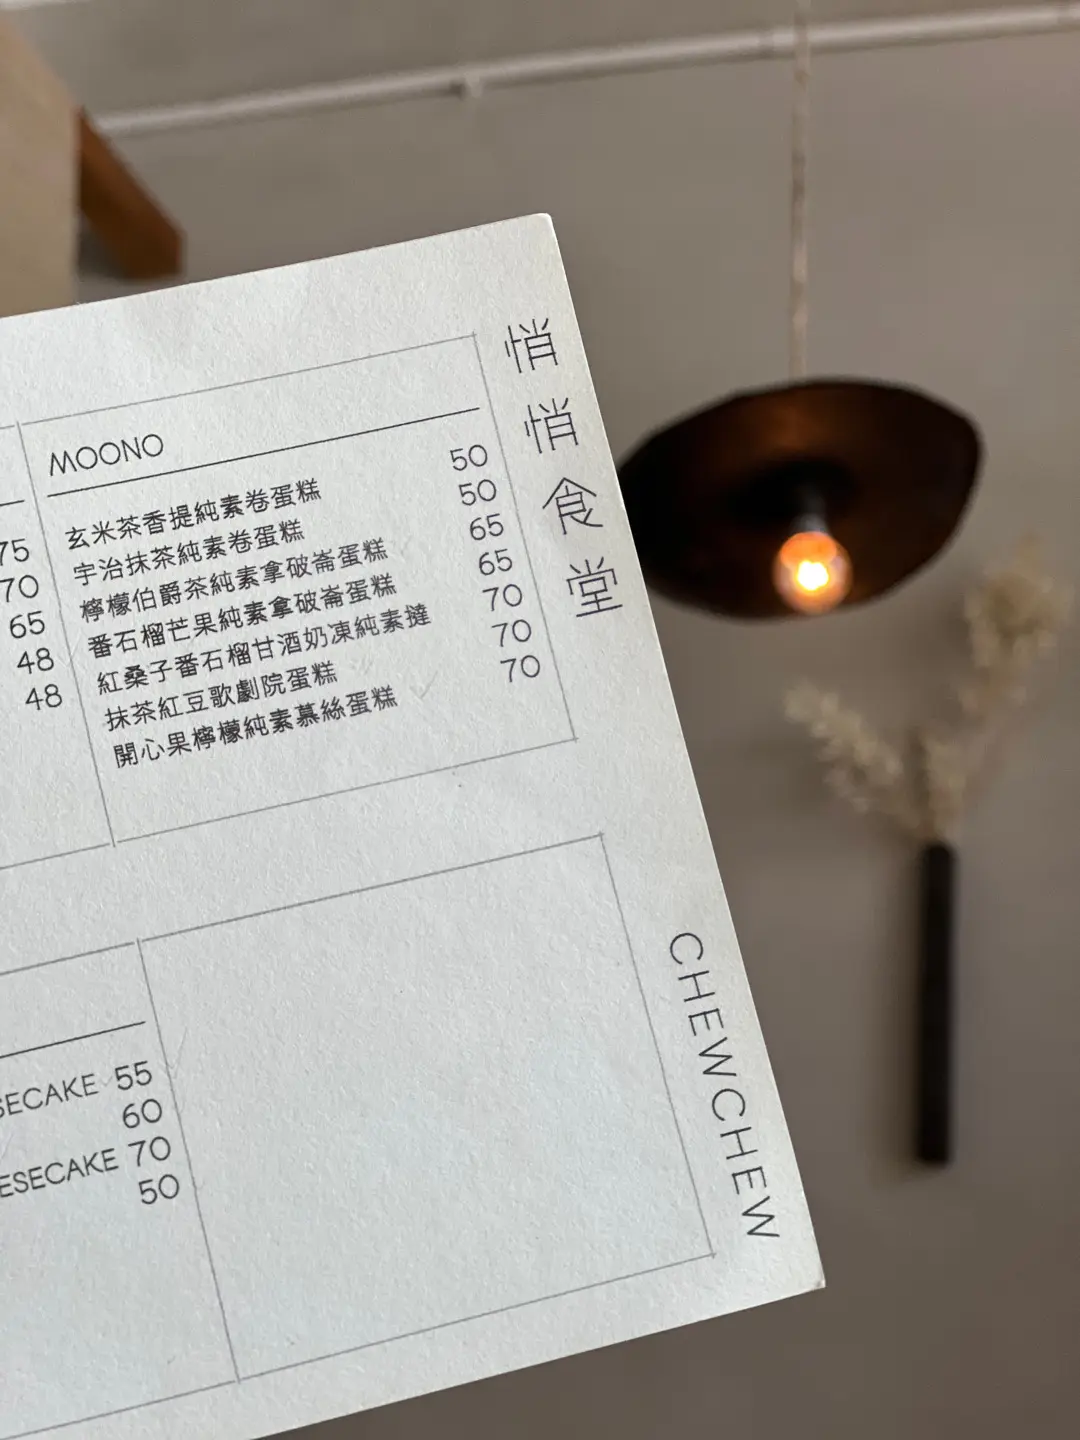 悄悄食堂
MOONO
玄米茶香提純素卷蛋糕 50
宇治抹茶純素卷蛋糕 50
檸檬伯爵茶純素拿破崙蛋糕 65
番石榴芒果純素拿破崙蛋糕 65
紅桑子番石榴甘酒奶凍純素撻 70
抹茶紅豆歌劇院蛋糕 70
開心果檸檬純素慕絲蛋糕 70
75
70
65
48
48
SECAKE 55
60
ESECAKE 70
50
CHEWCHEW